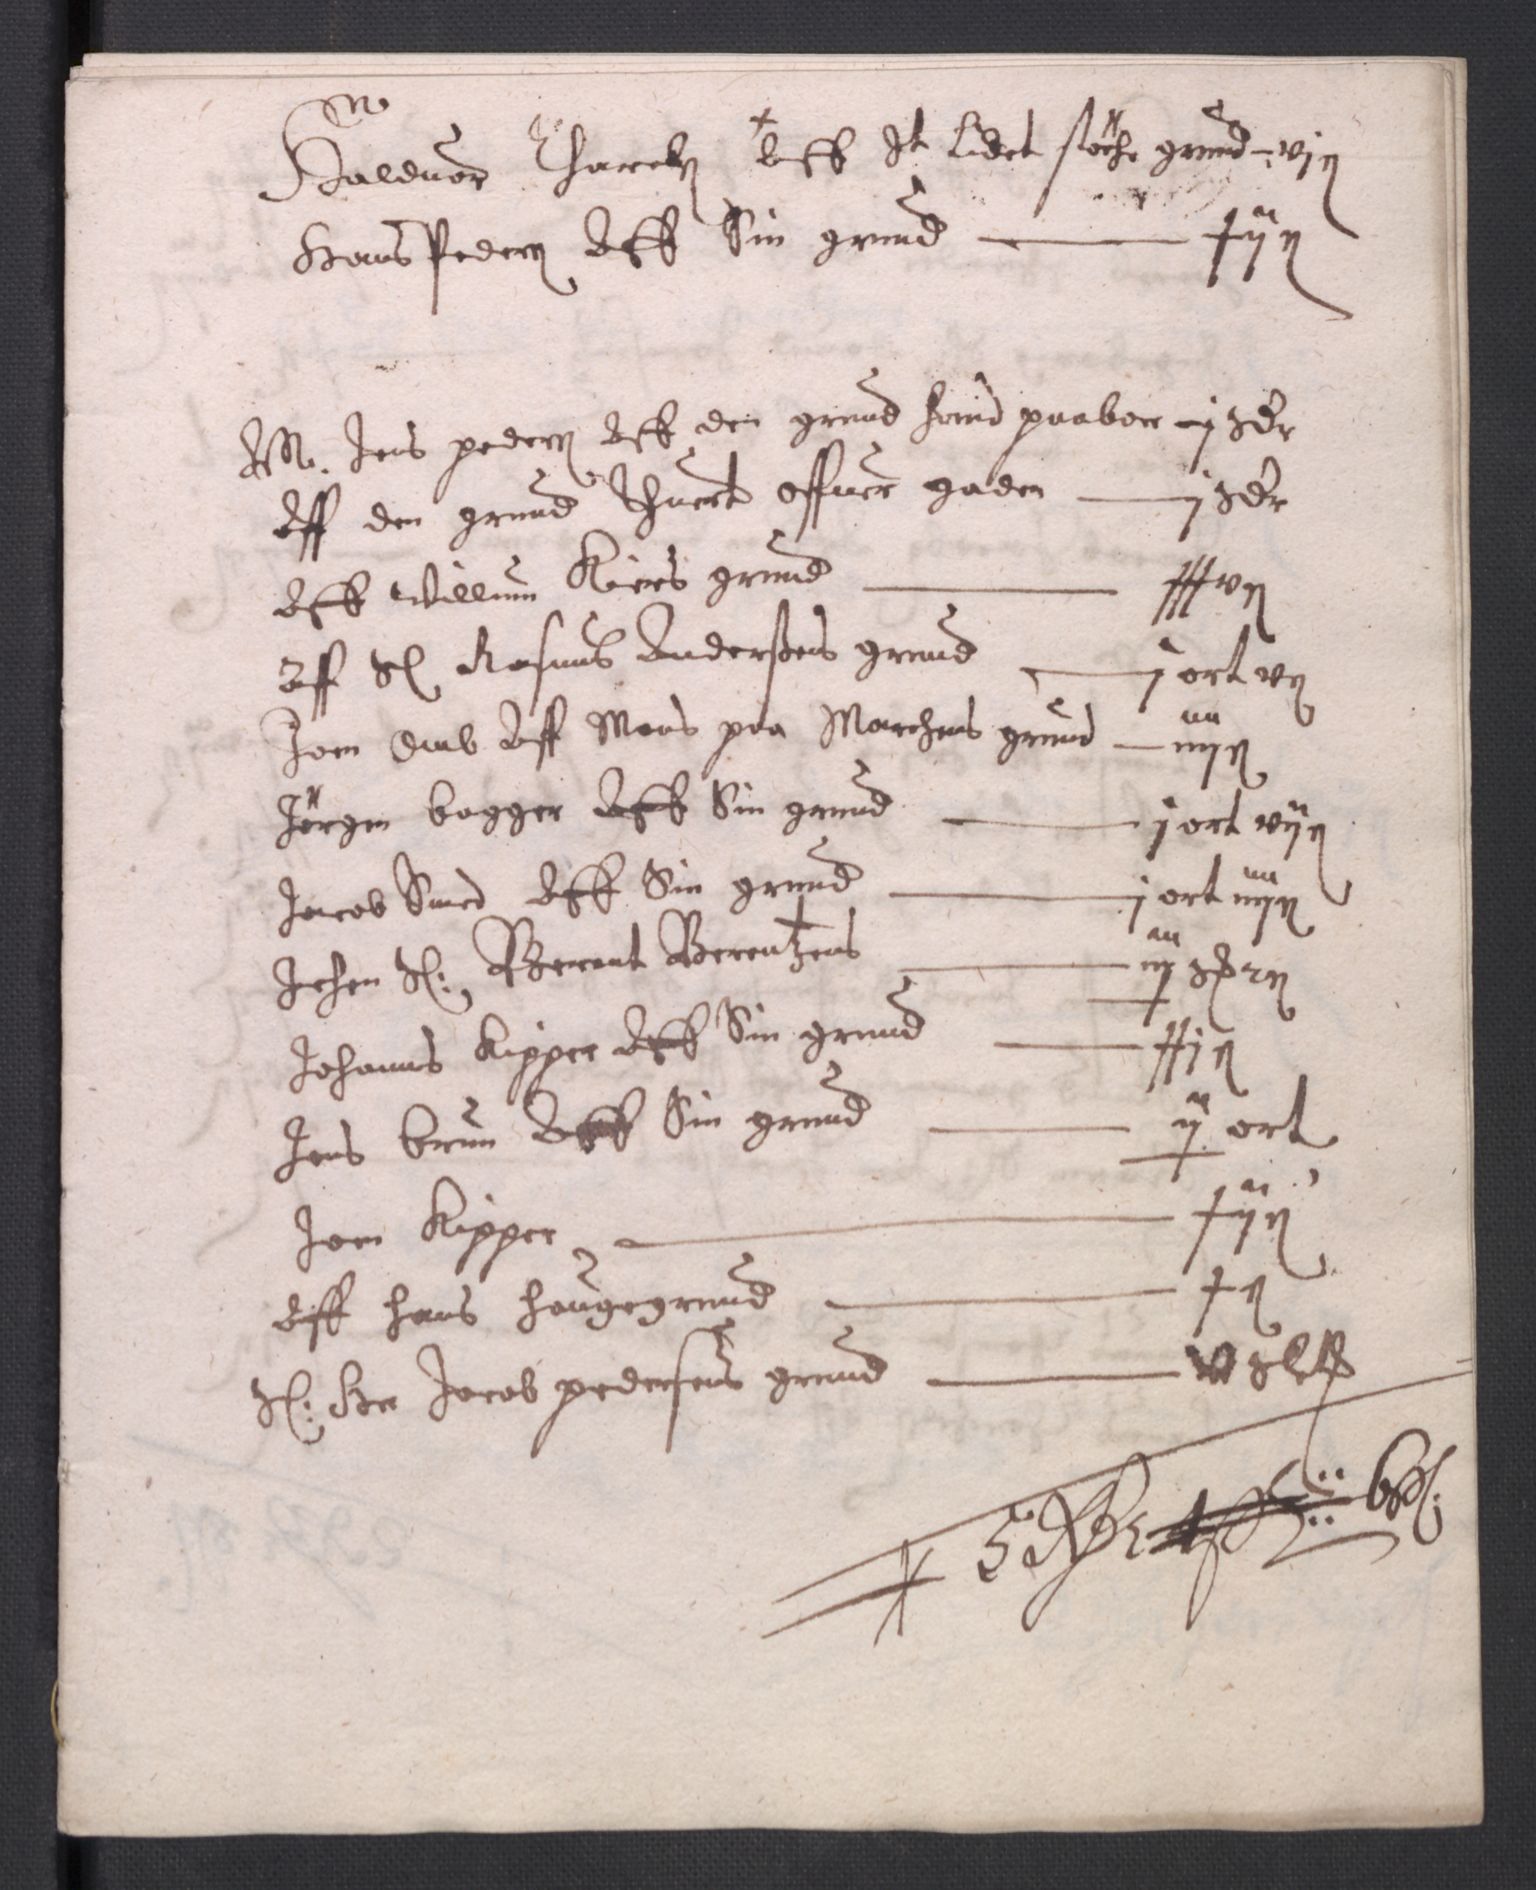 Halduor Tharels Aff It Lidet støche grund – vj ß
Hans Peders Aff Sin grund — xij ß
M. Jens peders Aff den grund hand paaboer – j dr
Aff den grund thuert offuer gaden — j dr
Aff Willum Kiers grund — xxxv ß
Aff Sl Rasmus Anderßens grund — j ort v ß
Joen Aff Mons paa Marchens grund — iiij ß
Jørgen bagger Aff Sin grund — j ort vij ß
Jacob Smed Aff Sin grund — j ort iiij ß
Sl: Berent Berentzens — iij
Johanns Kipper Aff Sin grund — xxj ß
Jens brun Aff Sin grund — ij ort
Joen Kipper — xij ß
Aff hans haugegrund — x ß
Sl: Her Jacob pedersens grund —
5